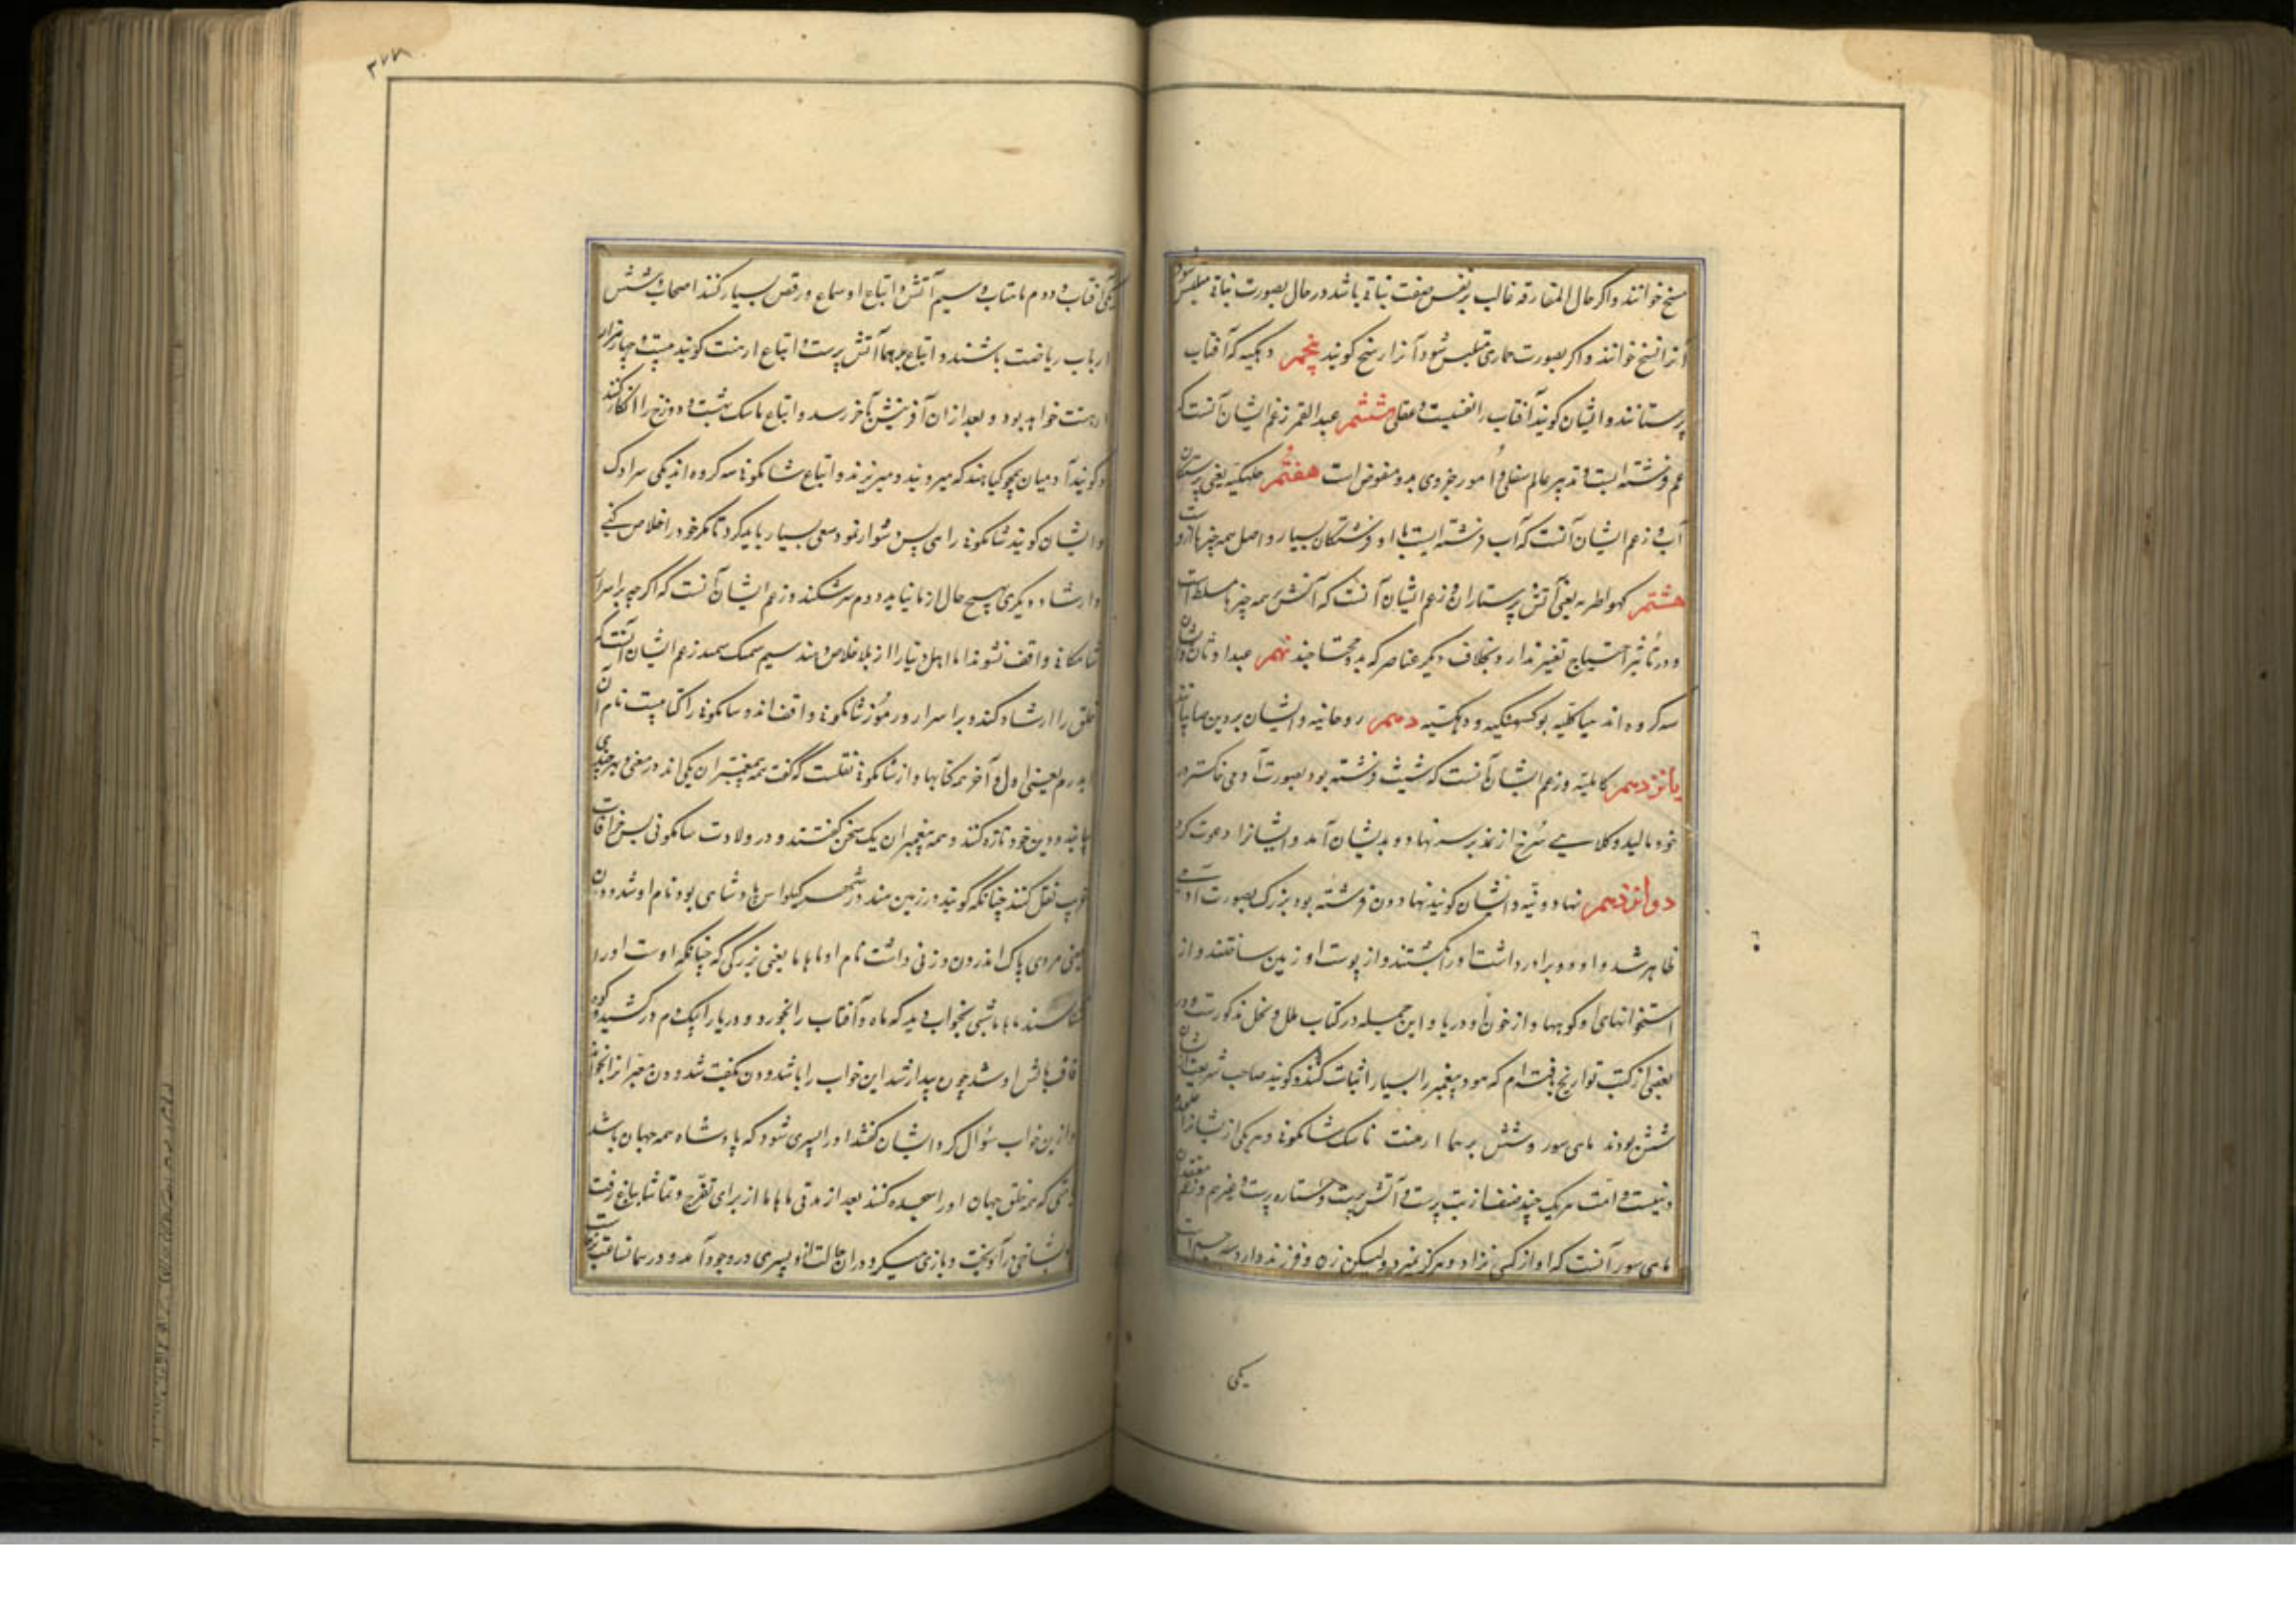 مسخ خوانند و اگر حال المفارقه غالب بر نفس صفت نباتی باشد در حال بصورت نباتی متلبس شود
آنرا فسخ خوانند و اگر بصورت جمادی متلبس شود آنرا رسخ گویند پنجم دهکیه که آفتاب
پرستانند و ایشان گویند آفتاب را نفسیست و عقلی ششم عبدالقمر زعم ایشان آنست که
قمر فرشته ایست و تدبیر عالم سفلی و امور جزوی بدو مفوض است هفتم جلهکیه یعنی پرستندگان
آب و زعم ایشان آنست که آب فرشته ایست با او فرشتگان بسیار و اصل همه چیزها ازوست
هشتم کهواطریه یعنی آتش پرستاران و زعم ایشان آنست که آتش بر همه چیزها مسلط است
و در تأثیر احتیاج تغیر ندارد بخلاف دیگر عناصر که بدو محتاجند نهم عبد اوثان و ایشان
سه گروه اند مهاکلیه برکسهیکیه و دهکنیه دهم روحانیه و ایشان بر دین صابیانند
یانزدهم کابلیه و زعم ایشان آنست که شیث فرشته بود بصورت آدمی خاکستر در
خود مالیده و کلاهی سرخ از نمد بر سر نهاده و بدیشان آمد و ایشانرا دعوت کرد
دوانزدهم نهادونیه و ایشان گویند نهادون فرشته بود بزرگ بصورت آدمی
ظاهر شد و او دو برادر داشت او را بکشتند و از پوست او زمین ساختند و از
استخوانهای او کوهها و از خون او دریا و این جمله در کتاب ملل و نحل مذکورست و در
بعضی از کتب تواریخ یافته‌ام که هنود پیغمبر را بسیار اثبات کنند و گویند صاحب شریعت ایشان
شش بودند ماهی‌سور وشش برهما ارهنت ناسک شاکمونی و هر یکی از ایشانرا
دینیست و امت هر یک چند صنف از بت پرست و آتش پرست و ستاره پرست و غیرهم و زعم معتقدان
ماهی‌سور آنست که او از کسی نزاد و هرگز نمیرد و لیکن زن و فرزند دارد سه چشم است
یکی
۳۷۸
یکی آفتاب و دوم ماهتاب و سیم آتش و اتباع او سماع و رقص بسیار کنند اصحاب وشش
ارباب ریاضت باشند و اتباع برهما آتش پرست و اتباع ارهنت گویند بیست و چهار هزار
ارهنت خواهد بود و بعد از ان آفرینش بآخر رسد و اتباع ناسک بهشت و دوزخ را انکار کنند
و گویند آدمیان همچو گیاهند که میرویند و میریزند و اتباع شاکمونی سه گروه اند یکی سراوک
و ایشان گویند شاکمونی راهی بس دشوار نمود سعی بسیار باید کرد تا مگر خود را خلاص کنی
و ارشاد دیگری بهیچ حال از ما نیاید دوم سرشکند و زعم ایشان آنست که اگرچه بر اسرار
شاکمونی واقف نشوند اما اهل دنیا را از بلا خلاص دهند سیم سمک سمبد زعم ایشان آنست که
خلق را ارشاد کنند و بر اسرار و رموز شاکمونی واقف اند و شاکمونی را کتابیست نام آن
ابدرم یعنی اول و آخر همه کتابها و از شاکمونی نقلست که گفت همه پیغمبران یکی اند در معنی و بهر چندی
بیایند و دین خود تازه کنند و همه پیغمبران یک سخن گفتند و در ولادت شاکمونی بس خرافات
غریب نقل کنند چنانکه گویند در زمین هند در شهر کیلواس پادشاهی بود نام او شدودن
یعنی مردی پاک اندرون و زنی داشت نام او ماهاما یعنی بزرگی که چنانکه اوست او را
نشناسند ماهاما شبی بخواب دید که ماه و آفتاب را بخورد و دریا را بیک دم درکشید و کوه
قاف بالش او شد چون بیدار شد این خواب را با شدودن بگفت شدودن معبرانرا بخواند
و ازین خواب سؤال کرد ایشان گفتند او را پسری شود که پادشاه همه جهان باشد
چنانکه همه خلق جهان او را سجده کنند بعد از مدتی ماهاما از برای تفرج و تماشا بباغ رفت
و بشاخی درآویخت و بازی میکرد در ان حالت ازو پسری در وجود آمد و در همان ساعت برخاست